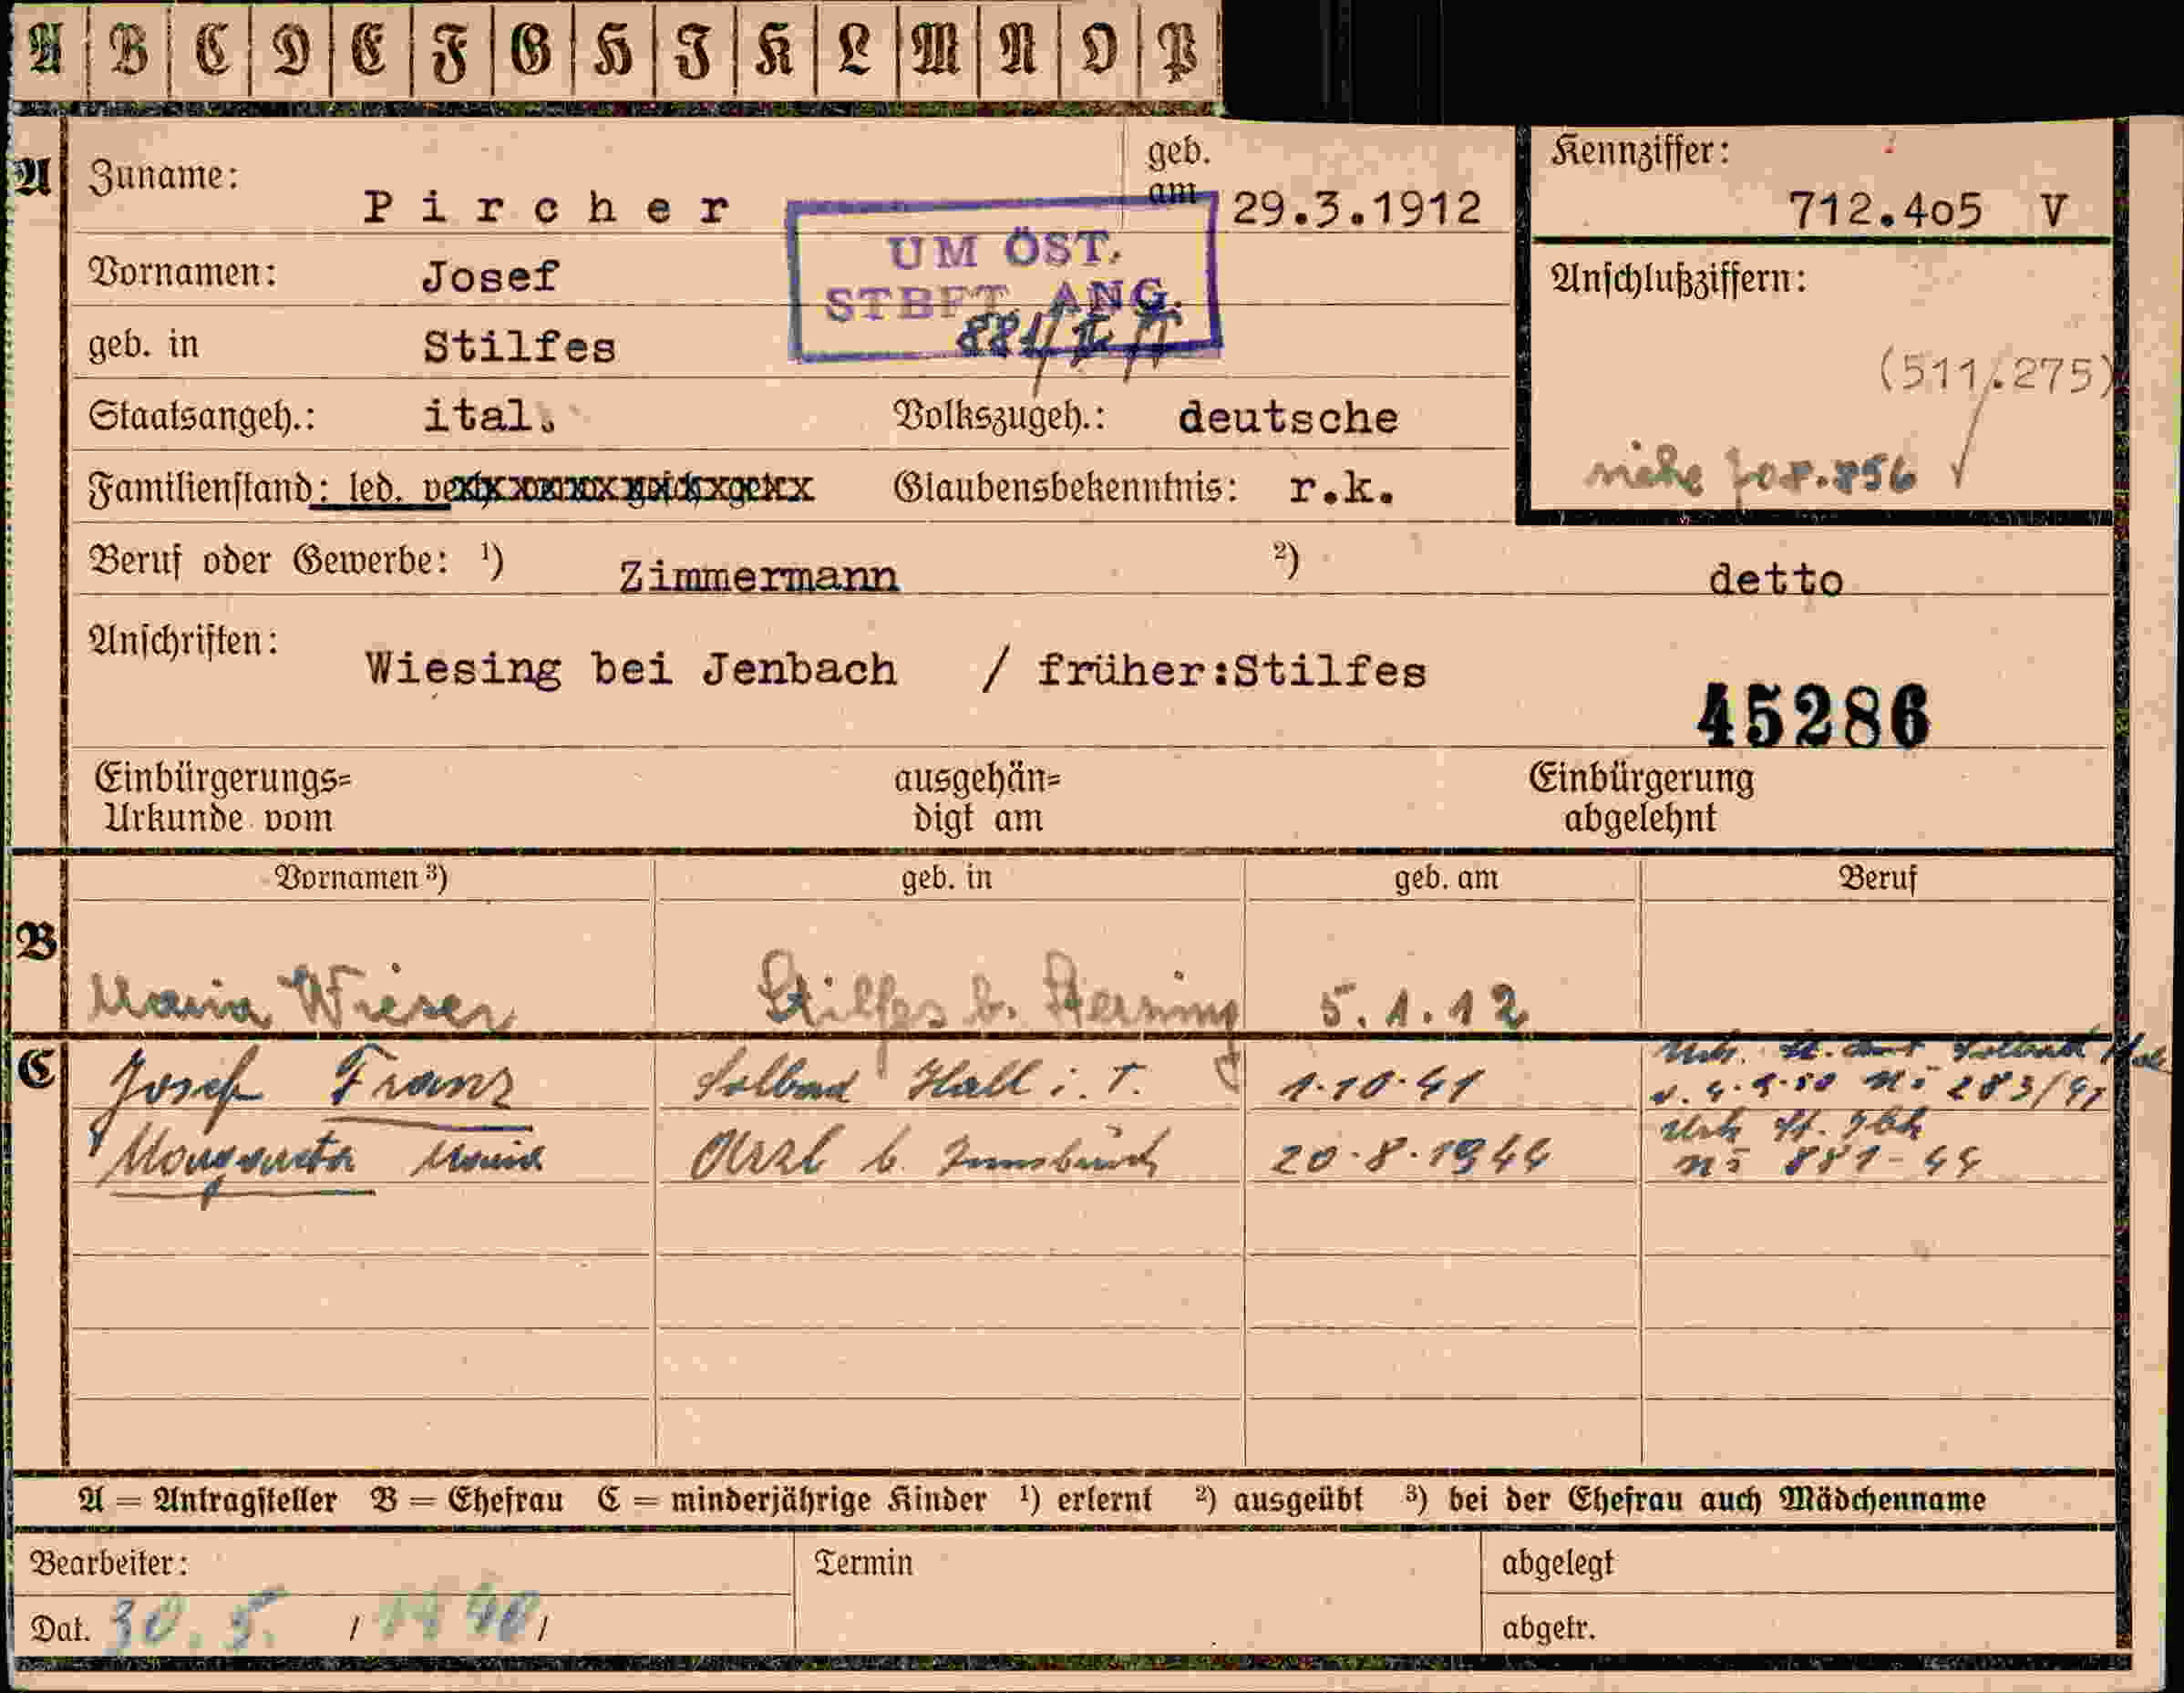 A B C D E F G H I K L M N O P
A Zuname: Pircher geb. am 29.3.1912 Kennziffer: 712.405 V
UM ÖST.
STBFT. ANG.
881/
Vornamen: Josef Anschlußziffern:
geb. in Stilfes
(511.275)
Staatsangeh.: ital. Volkszugeh.: deutsche
siehe 708.856
Familienstand: led. Glaubensbekenntnis: r.k.
Beruf oder Gewerbe: ¹) Zimmermann ²) detto
Anschriften: Wiesing bei Jenbach / früher:Stilfes
45286
Einbürgerungs= ausgehän= Einbürgerung
Urkunde vom digt am abgelehnt
Vornamen ³) geb. in geb. am Beruf
B Maria Wieser Stilfes b. Sterzing 5.1.12
C Josef Franz Solbad Hall i. T. 1.10.41 283/41
Margareta Maria Arzl b. Innsbruck 20.8.1944 881-44
A = Antragsteller B = Ehefrau C = minderjährige Kinder ¹) erlernt ²) ausgeübt ³) bei der Ehefrau auch Mädchenname
Bearbeiter: Termin abgelegt
Dat. 30.5. / 1940 / abgetr.